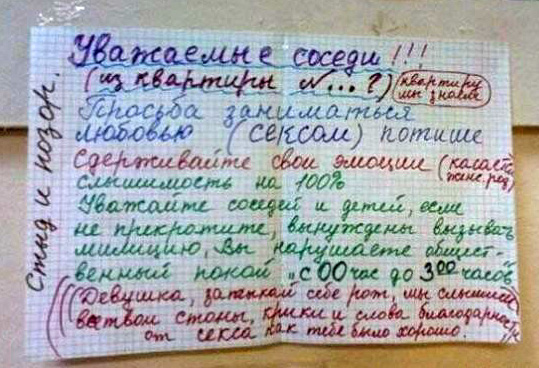 Уважаемые соседи!!!
(из квартиры №...?) (квартиру мы знаем)
Просьба заниматься
любовью (сексом) потише
Сдерживайте свои эмоции (касается женс. род)
слышимость на 100%
Уважайте соседей и детей, если
не прекратите, вынуждены вызывать
милицию, Вы нарушаете общест-
венный покой "с 00 час до 3 00 часов"
Девушка, затыкай себе рот, мы слышим
все твои стоны, крики и слова благодарности
от секса как тебе было хорошо.
Стыд и позор.